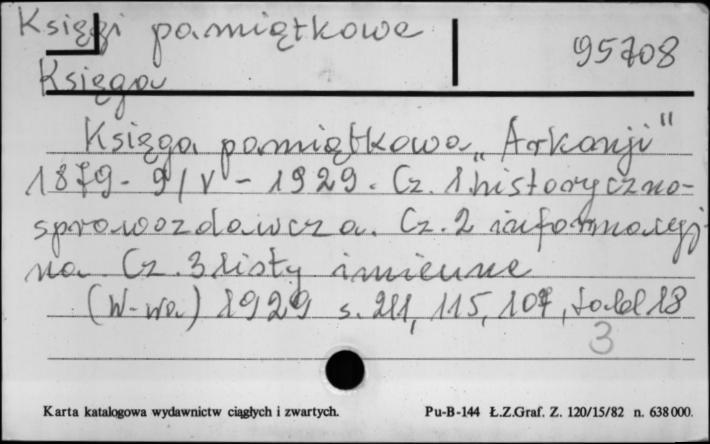 Księgi pamiątkowe
95708
Księga
Księga pamiątkowa „Arkonji"
1879 - 9/V - 1929. Cz. 1.historyczno-
sprawozdawcza. Cz. 2 informacyj-
na Cz. 3 listy imienne
(W-wa) 1929 s. 211, 115, 107, tabl 18
3
Karta katalogowa wydawnictw ciągłych i zwartych.
Pu-B-144 Ł.Z.Graf. Z. 120/15/82 n. 638000.